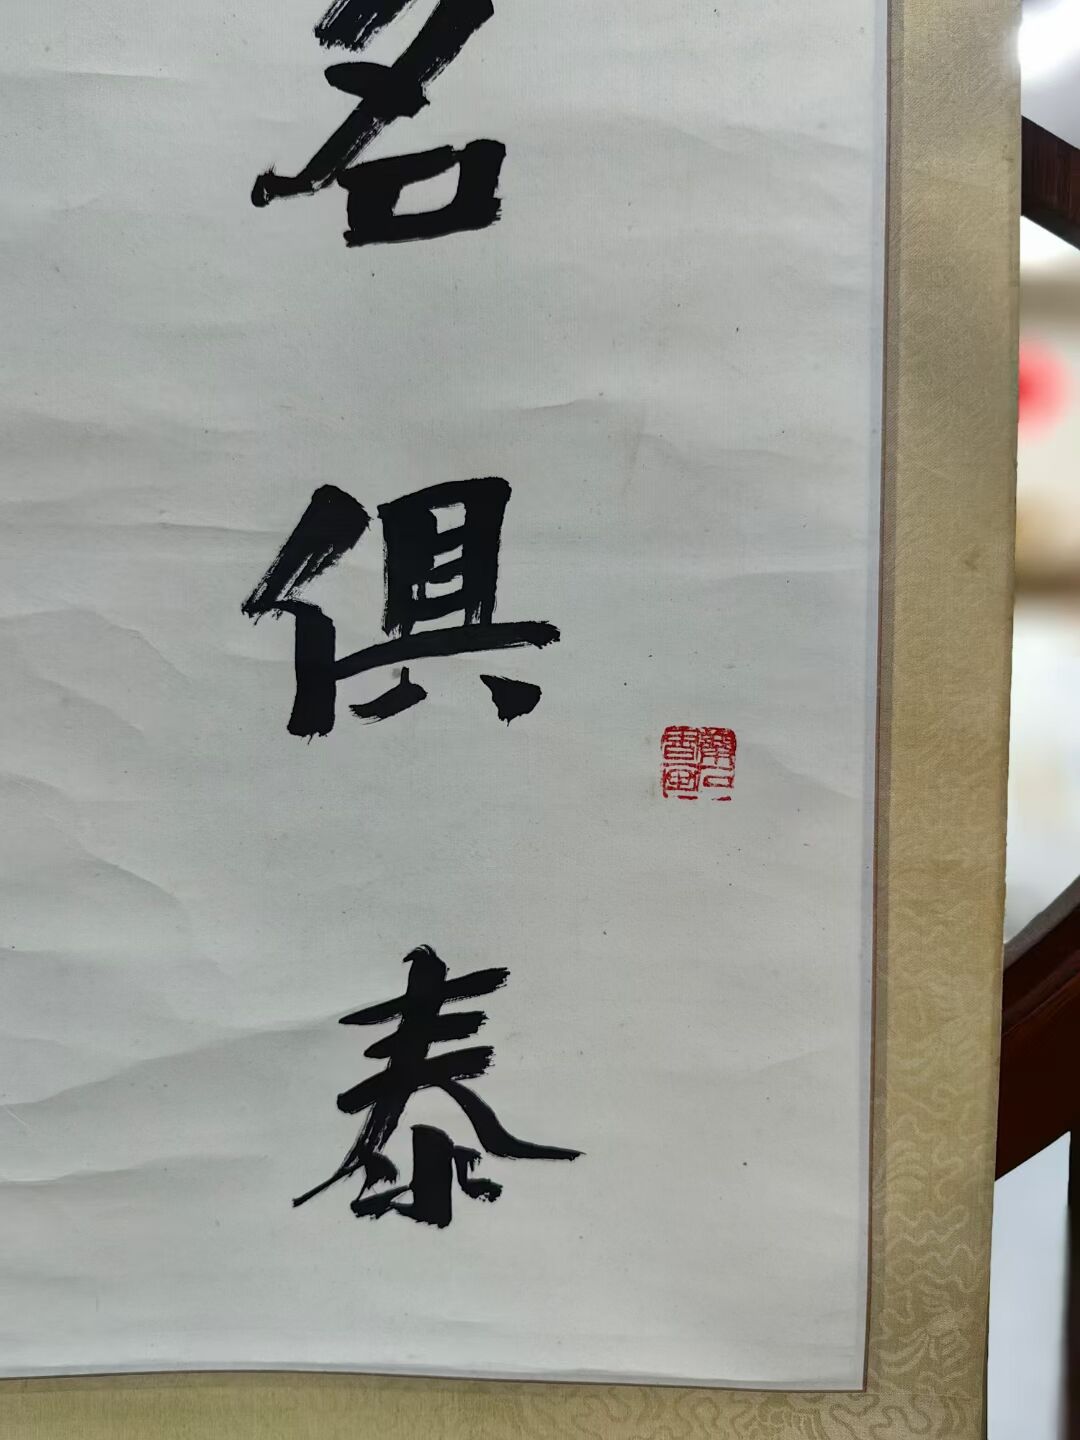 名
俱
泰